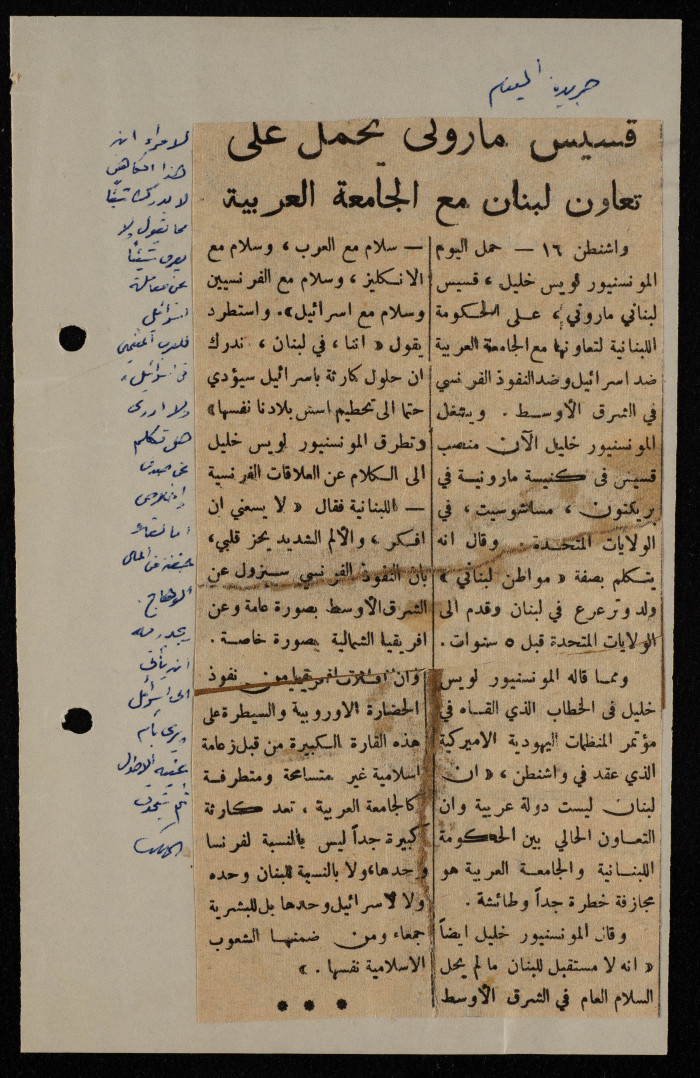 جريدة
قسيس ماروني يحمل على
تعاون لبنان مع الجامعة العربية
واشنطن ١٦ — حمل اليوم
المونسنيور لويس خليل ، قسيس
لبناني ماروني ، على الحكومة
اللبنانية لتعاونها مع الجامعة العربية
ضد اسرائيل وضد النفوذ الفرنسي
في الشرق الأوسط . ويشغل
المونسنيور خليل الآن منصب
قسيس في كنيسة مارونية في
بريكتون ، مساشوسيت ، في
الولايات المتحدة . وقال انه
يتكلم بصفة « مواطن لبناني »
ولد وترعرع في لبنان وقدم الى
الولايات المتحدة قبل ٥ سنوات .
ومما قاله المونسنيور لويس
خليل في الخطاب الذي القاه في
مؤتمر المنظمات اليهودية الاميركية
الذي عقد في واشنطن ، « ان
لبنان ليست دولة عربية وان
التعاون الحالي بين الحكومة
اللبنانية والجامعة العربية هو
مجازفة خطرة جداً وطائشة .
وقال المونسنيور خليل ايضاً
« انه لا مستقبل للبنان ما لم يحل
السلام العام في الشرق الأوسط
— سلام مع العرب ، وسلام مع
الانكليز ، وسلام مع الفرنسيين
وسلام مع اسرائيل». واستطرد
يقول « اننا ، في لبنان ، ندرك
ان حلول كارثة باسرائيل سيؤدي
حتما الى تحطيم اسس بلادنا نفسها»
وتطرق المونسنيور لويس خليل
الى الكلام عن العلاقات الفرنسية
— اللبنانية فقال « لا يسعني ان
افكر ، والألم الشديد يحز قلبي ،
بان النفوذ الفرنسي سيزول عن
الشرق الأوسط بصورة عامة وعن
افريقيا الشمالية بصورة خاصة .
وان افلات افريقيا من نفوذ
الحضارة الاوروبية والسيطرة على
هذه القارة الكبيرة من قبل زعامة
اسلامية غير متسامحة ومتطرفة
كالجامعة العربية ، تعد كارثة
كبيرة جداً ليس بالنسبة لفرنسا
وحدها، ولا بالنسبة للبنان وحده
ولا لاسرائيل وحدها بل للبشرية
جمعاء ومن ضمنها الشعوب
الاسلامية نفسها . »
* * *
ان
هذا
لا يدرك شيئا
مما يقول ولا
يعرف شيئا
عن معاملة
اسرائيل
في اسرائيل
ولا ادري
هل تكلم
عن
يجدر به
ان يأتي
الى اسرائيل
ويرى بأم
عينيه
ثم